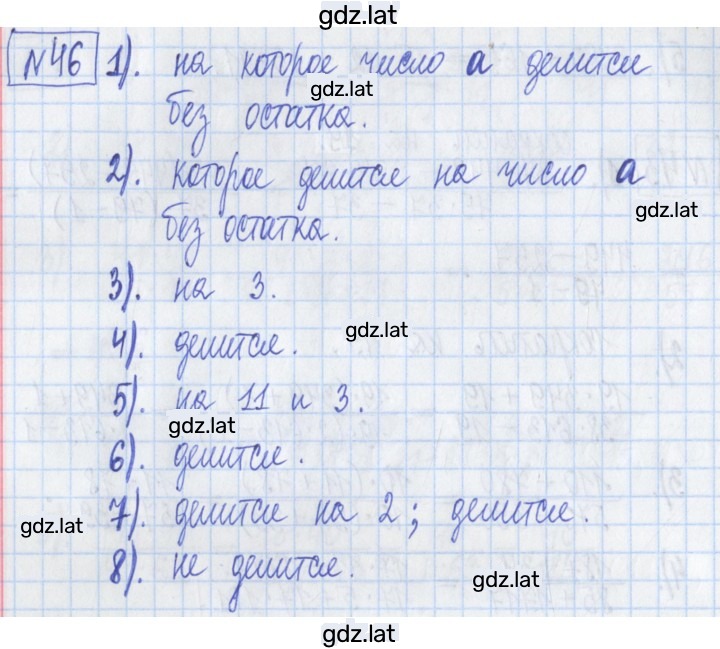 gdz.lat
№46 1). на которое число а делится
gdz.lat
без остатка.
2). которое делится на число а
gdz.lat
без остатка.
3). на 3.
gdz.lat
4). делится.
5). на 11 и 3.
gdz.lat
6). делится.
7). делится на 2; делится.
gdz.lat
8). не делится.
gdz.lat
gdz.lat